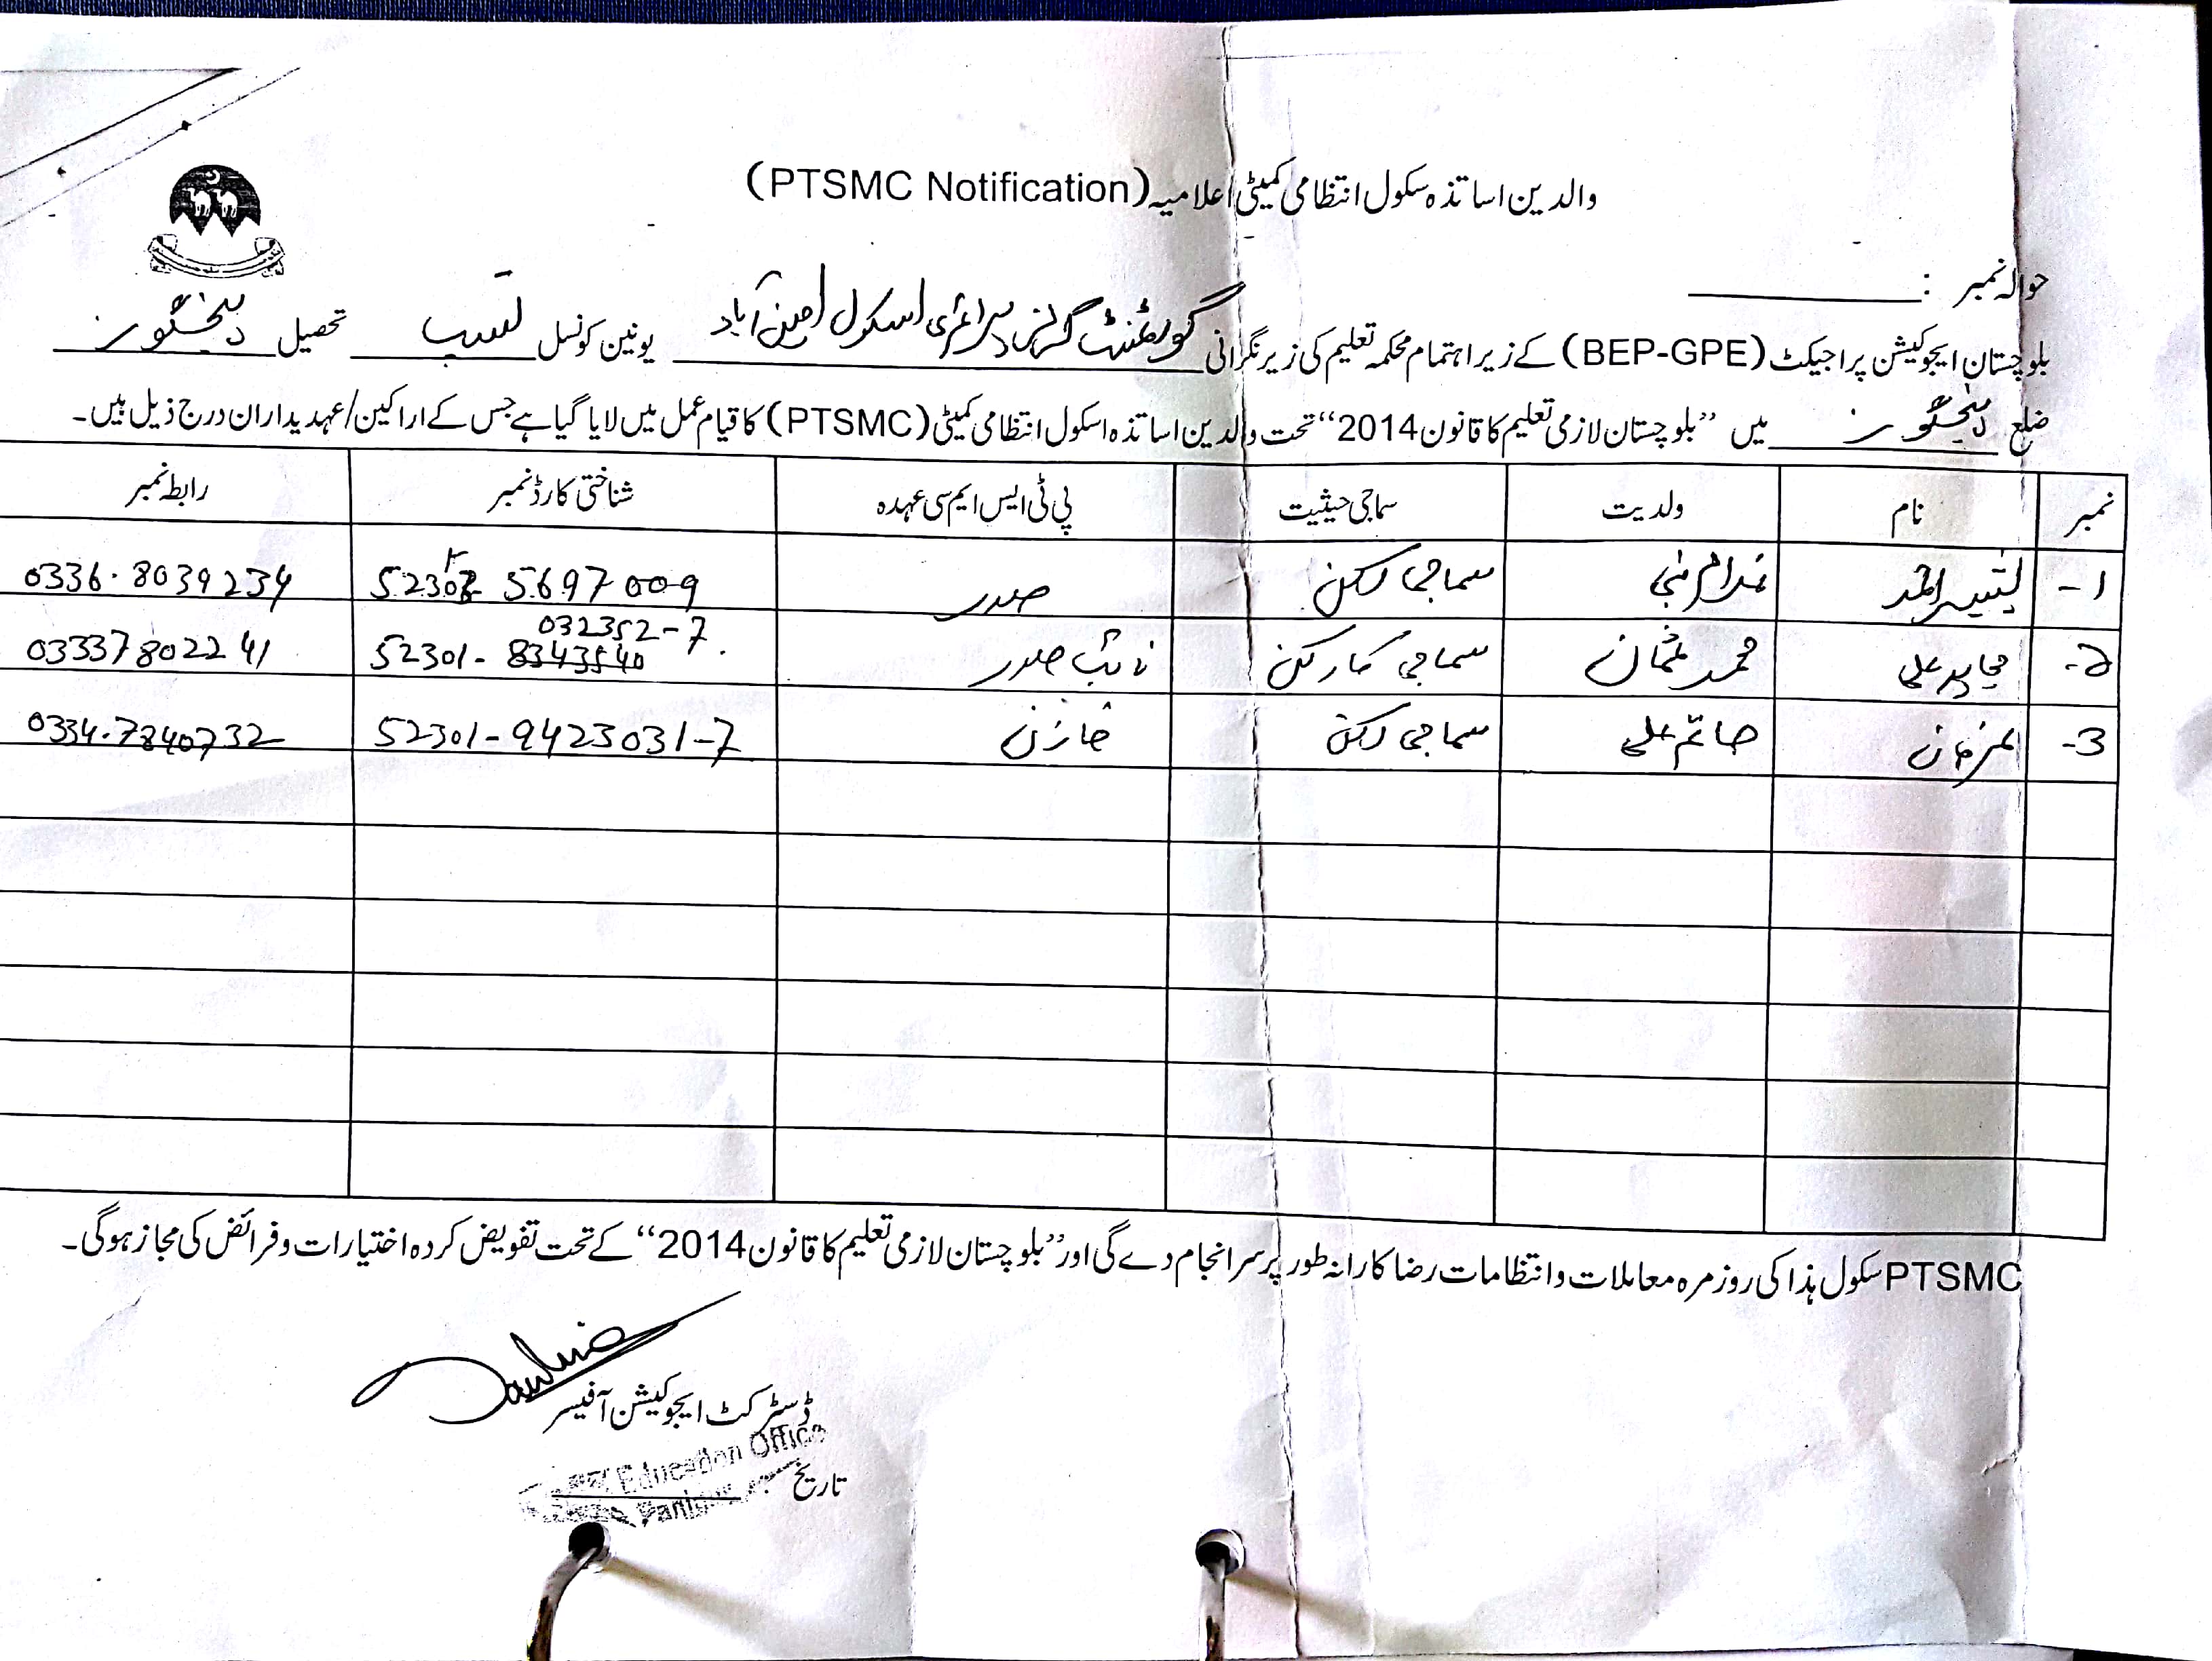 والدین اساتذہ سکول انتظامی کمیٹی اعلامیہ (PTSMC Notification)
حوالہ نمبر :
بلوچستان ایجوکیشن پراجیکٹ (BEP-GPE) کے زیر اہتمام محکمہ تعلیم کی زیر نگرانی گورنمنٹ گرلز پرائمری اسکول امین آباد یونین کونسل تسپ تحصیل پنجگور
ضلع پنجگور میں ”بلوچستان لازمی تعلیم کا قانون 2014“ تحت والدین اساتذہ اسکول انتظامی کمیٹی (PTSMC) کا قیام عمل میں لایا گیا ہے جس کے اراکین/عہدیداران درج ذیل ہیں۔
نمبر نام ولدیت سماجی حیثیت پی ٹی ایس ایم سی عہدہ شناختی کارڈ نمبر رابطہ نمبر
1- سماجی رکن صدر 5697009 0336-8039234
2- مجاہد علی محمد عثمان سماجی کارکن نائب صدر 52301- 032352-7 03337802241
3- حاتم علی سماجی رکن خازن 52301-9423031-7 0334-7840732
PTSMC سکول ہذا کی روزمرہ معاملات و انتظامات رضا کارانہ طور پر سرانجام دے گی اور ”بلوچستان لازمی تعلیم کا قانون 2014“ کے تحت تفویض کردہ اختیارات و فرائض کی مجاز ہوگی۔
ڈسٹرکٹ ایجوکیشن آفیسر
Education Office
تاریخ